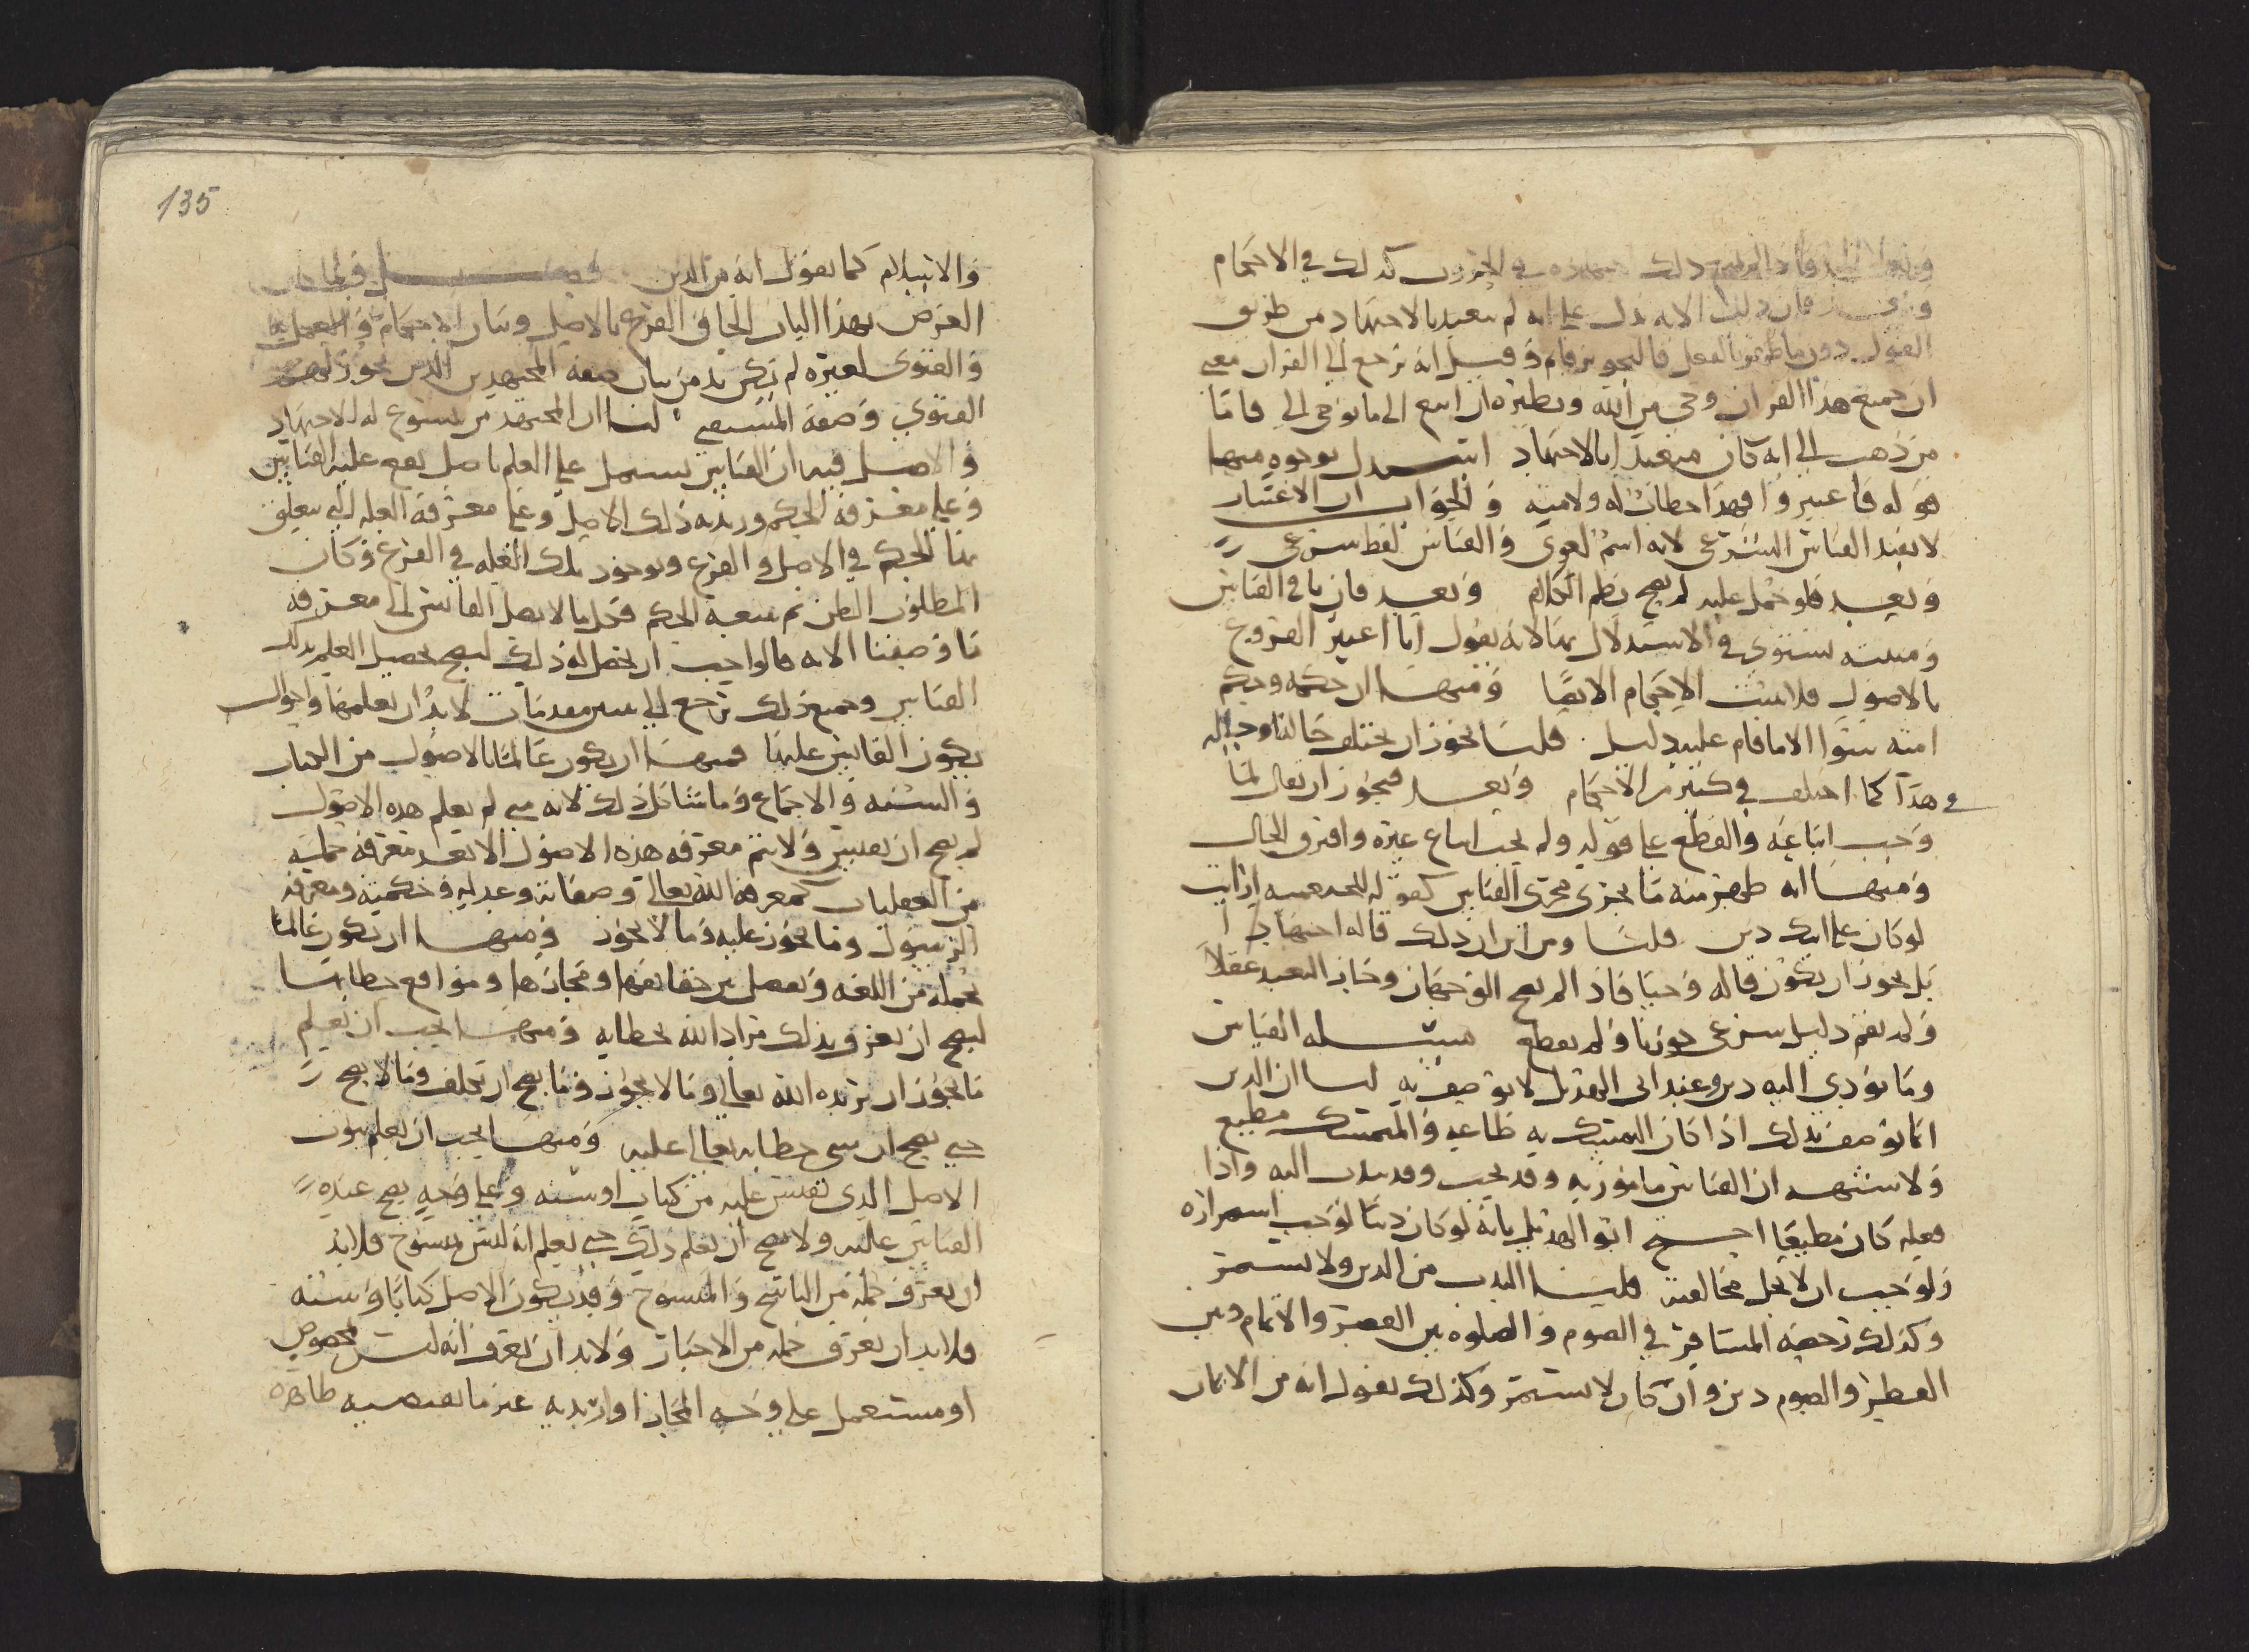 ذلك في الحروب كذلك في الاحكام
فان ذلك الايه تدل على انه لم يتعبد بالاحتهاد من طريق
القول دون ما طريقه الفعل فاليجويز قايم وقيل انه ترجع الى القران معنى
ان جميع هذا القران وحي من الله ونظيره ان اتبع الا ما يوحي الي فاما
من ذهب الى انه كان متعبدا بالاجتهاد استدل بوجوه منها
قوله فاعتبروا فهذا خطاب له ولامته والجواب ان الاعتبار
لا يفيد القياس الشرعي لانه اسم لغوي والقياس لفظ شرعي
وبعد فلو حمل عليه لم يصح نظم الكلام وبعد فان نافي القياس
ومثبته يستوي في الاستدلال بها لانه يقول انا اعتبر الفروع
بالاصول فلا يثبت الاحكام الا نصا ومنها ان حكمه وحكم
امته سوا الا ما قام عليه دليل قلنا يجوز ان يختلف حالنا وحاله
في هذا كما اختلف في كثير من الاحكام وبعد فيجوز ان يقال لما
وجب اتباعه والقطع على قوله ولم يجب اتباع غيره وافترق الحال
ومنها انه ظهر منه ما يجري مجرى القياس كقوله للخثعميه ارايت
لو كان على ابيك دين قلنا ومن اين ان ذلك قاله اجتهادا
بل يجوز ان يكون قاله وحيا فاذا لم يصح الوجهان وجاز التعبد عقلا
ولم يقم دليل شرعي جوزنا ولم نقطع مسله القياس
وما يؤدي اليه دين وعند ابي الهذيل لا يوصف به لنا ان الدين
انما يوصف بذلك اذا كان التمسك به طاعه والمتمسك مطيع
ولا شبهه ان القياس مامور به وقد يجب وقد يندب اليه واذا
فعله كان مطيعا احتج ابو الهذيل بانه لو كان دينا لوجب استمراره
ولوجب ان لا تحل مخالفته قلنا الندب من الدين ولا يستمر
وكذلك رخصه المسافر في الصوم والصلوه بين القصر والاتمام وبين
الفطر والصوم دين وان كان لا يستمر وكذلك نقول انه من الايمان
والاسلام كما نقول انه من الدين فصل
الغرض بهذا الباب الحاق الفرع بالاصل وبيان الاحكام والعمل بها
والفتوى لغيره لم يكن بد من بيان صفه المجتهدين الذين يجوز لهم
الفتوى وصفه المستفتي لنا ان المجتهد من يسوغ له الاجتهاد
والاصل فيه ان القياس يشتمل على العلم باصل يقع عليه القياس
وعلى معرفه الحكم وربه ذلك الاصل وعلى معرفه العله التي يتعلق
بها الحكم في الاصل والفرع وبوجود تلك العله في الفرع وكان
المطلوب الظن ثم يتبعه الحكم فكل ما لا يصل القايس الى معرفه
ما وصفنا الا به فالواجب ان يحصل له ذلك ليصح تحصيل العلم بذلك
القياس وجميع ذلك ترجع الى مقدمات لا بد ان يعلمها واحوال
يكون القايس عليها فمنها ان يكون عالما بالاصول من الكتاب
والسنه والاجماع وما شاكل ذلك لانه متى لم يعلم هذه الاصول
لم يصح ان يقيس ولا يتم معرفه هذه الاصول الا بعد معرفه جمله
من العقليات كمعرفه الله تعالى وصفاته وعدله وحكمته ومعرفه
الرسول وما يجوز عليه وما لا يجوز ومنها ان يكون عالما
بجمله من اللغه ويفصل بين حقايقها ومجازها ومواقع خطابنا
ليصح ان يعرف بذلك مراد الله بخطابه ومنها يجب ان يعلم
ما يجوز ان يريده الله تعالى وما لا يجوز وما يصح ان يكلف وما لا يصح
حتى يصح ان خطابه تعالى عليه ومنها يجب ان يعلم ثبوت
الاصل الذي نقيس عليه من كتاب او سنه وعلى وجه يصح عنده
القياس عليه ولا يصح ان يعلم ذلك حتى يعلم انه ليس بمنسوخ فلا بد
ان يعرف جمله من الناسخ والمنسوخ وقد يكون الاصل كتابا وسنه
فلا بد ان يعرف جمله من الاخبار ولا بد ان يعرف انه ليس بمخصوص
او مستعمل على وجه المجاز او اريد به غير ما يقتضيه ظاهره
135